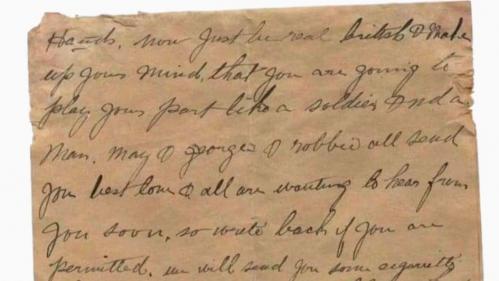 Hands, now just be real british & make
up your mind, that you are going to
play your part like a soldier & nd a
Man, may & george & robbie all send
you best love & all are wanting to hear from
you soon, so write back if you are
permitted, we will send you some cigaretts